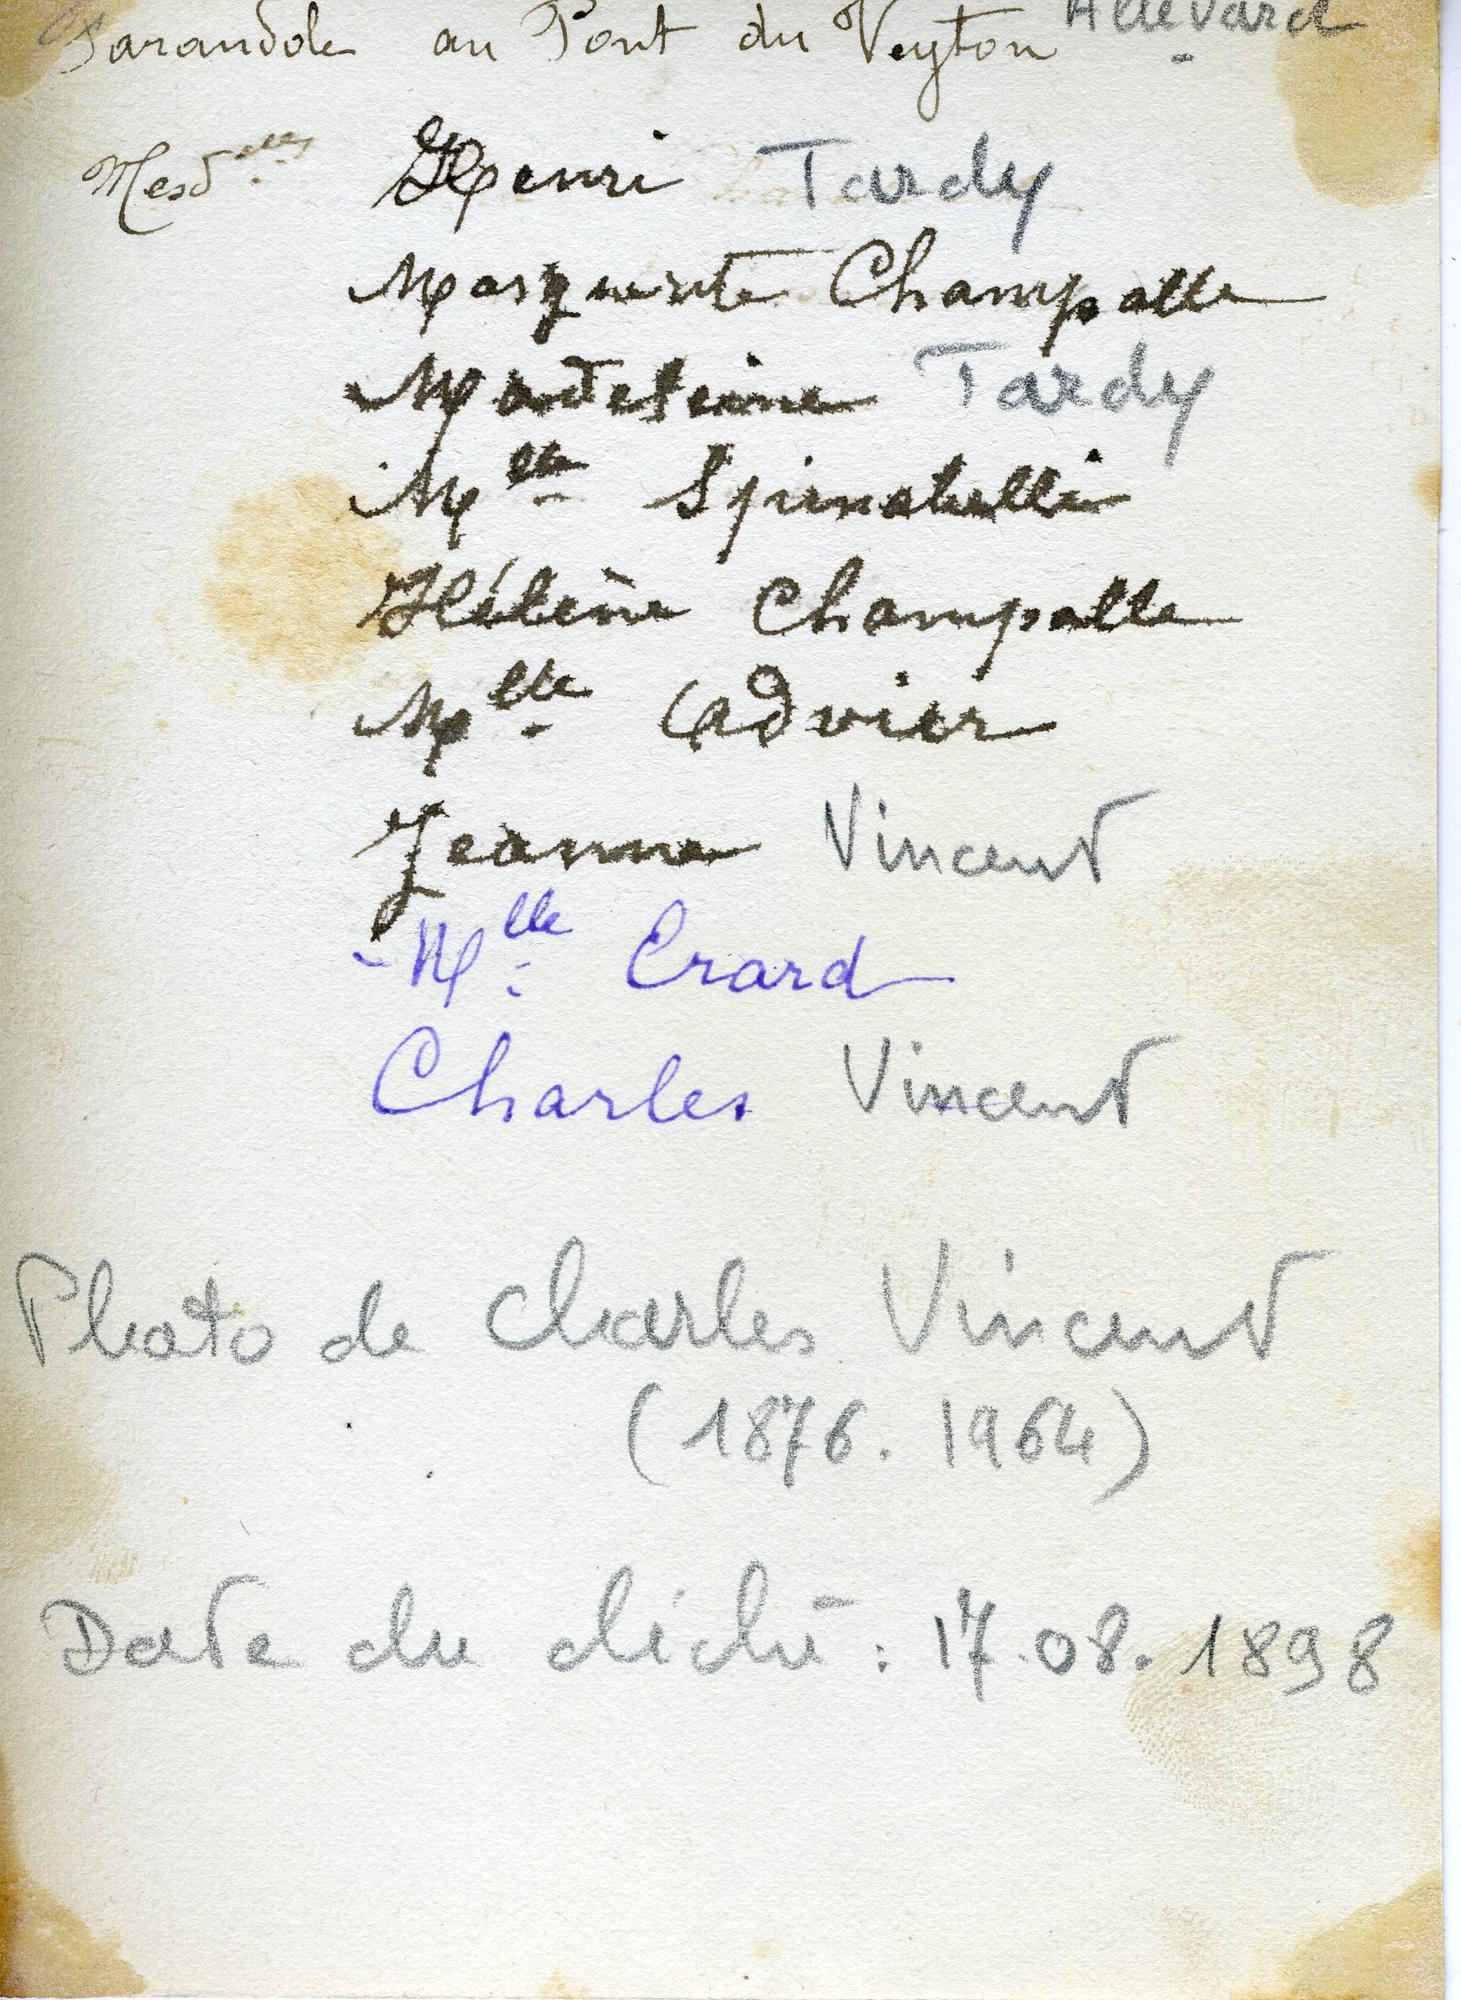 Farandole au Pont du Veyton Allevard
Mesd.elles Henri Tardy
Marguerite Champalle
Madeleine Tardy
Melle Spinatelli
Hélène Champalle
Melle Cadvier
Jeanne Vincent
- Melle Erard
Charles Vincent
Photo de Charles Vincent
(1876. 1964)
Date du cliché : 17.08.1898